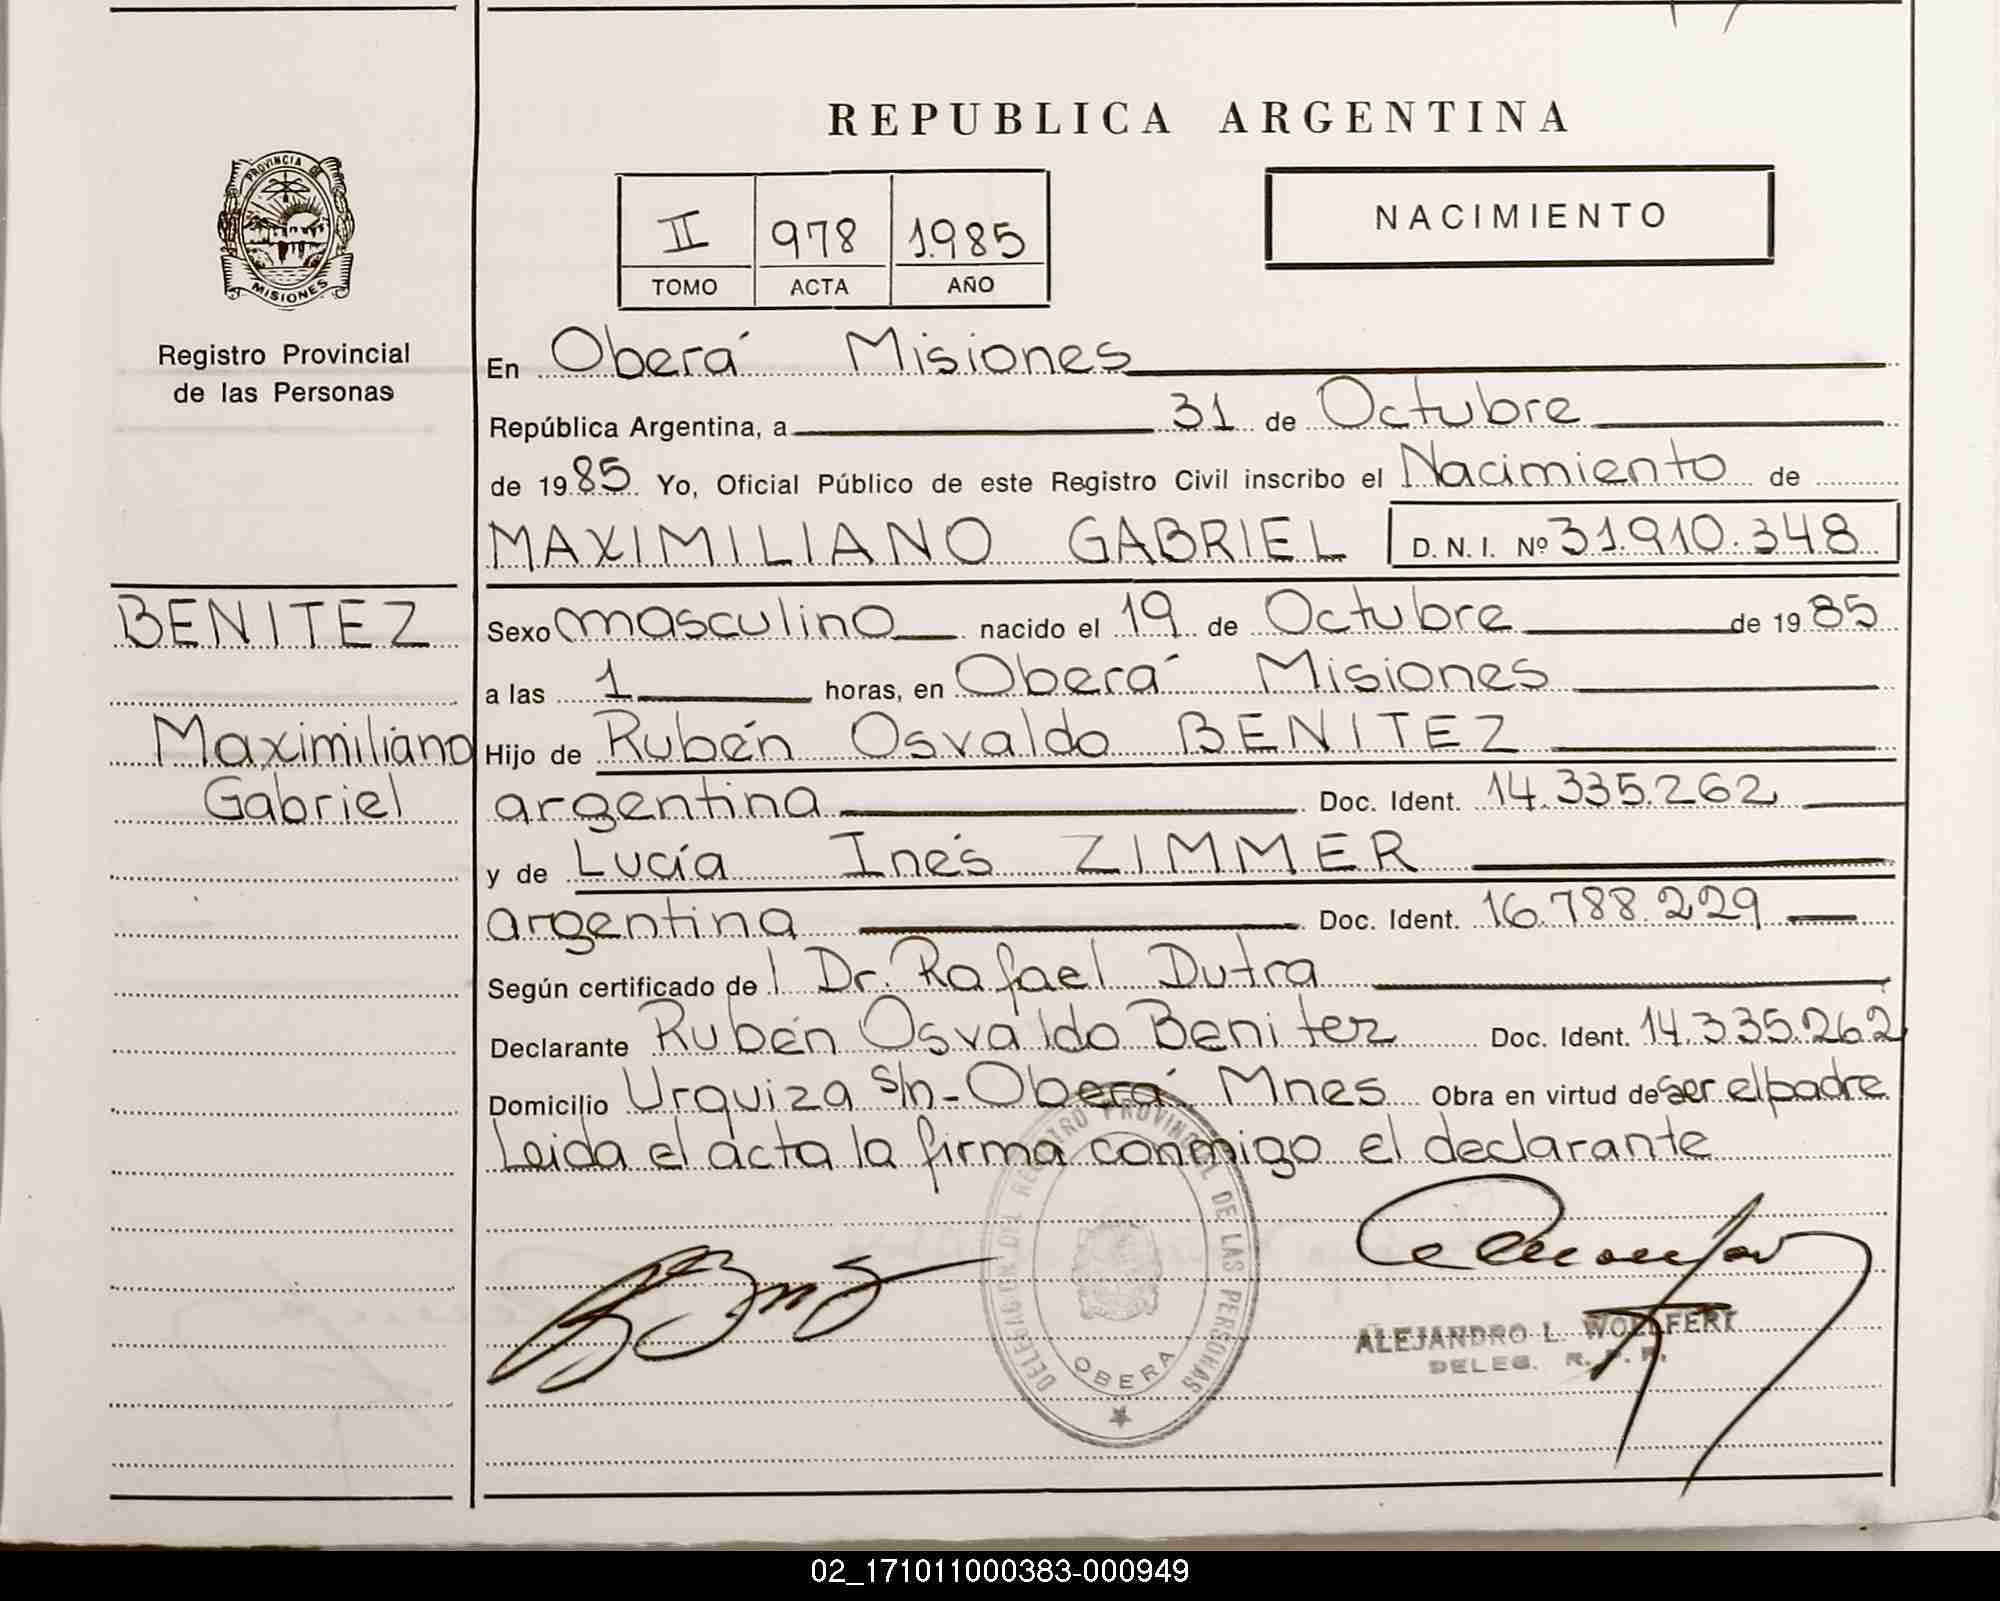 REPUBLICA ARGENTINA
PROVINCIA DE MISIONES
Registro Provincial
de las Personas
II 978 1985
TOMO ACTA AÑO
NACIMIENTO
En Oberá Misiones
República Argentina, a 31 de Octubre
de 1985 Yo, Oficial Público de este Registro Civil inscribo el Nacimiento de
MAXIMILIANO GABRIEL D.N.I. Nº 31.910.348
BENITEZ
Maximiliano
Gabriel
Sexo masculino nacido el 19 de Octubre de 1985
a las 1 horas, en Oberá Misiones
Hijo de Rubén Osvaldo BENITEZ
argentina Doc. Ident. 14.335.262
y de Lucía Inés ZIMMER
argentina Doc. Ident. 16.788.229
Según certificado de l Dr. Rafael Dutra
Declarante Rubén Osvaldo Benitez Doc. Ident. 14.335.262
Domicilio Urquiza s/n - Oberá Mnes Obra en virtud de ser el padre
Leida el acta la firma conmigo el declarante
DELEGACION DEL REGISTRO PROVINCIAL DE LAS PERSONAS
OBERA
ALEJANDRO L. WOLFFERT
DELEG. R. P. P.
02_171011000383-000949